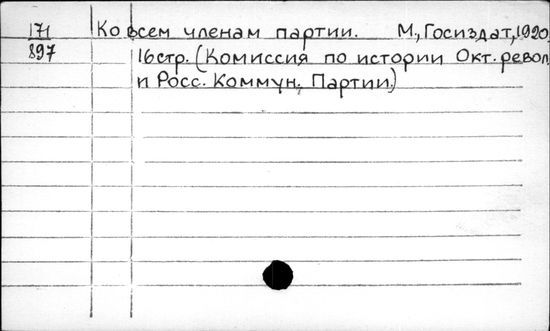 171 Ко всем членам партии. М., Госиздат, 1920,
897 16 стр. (Комиссия по истории Окт. револ.
и Росс. Коммун. Партии.)